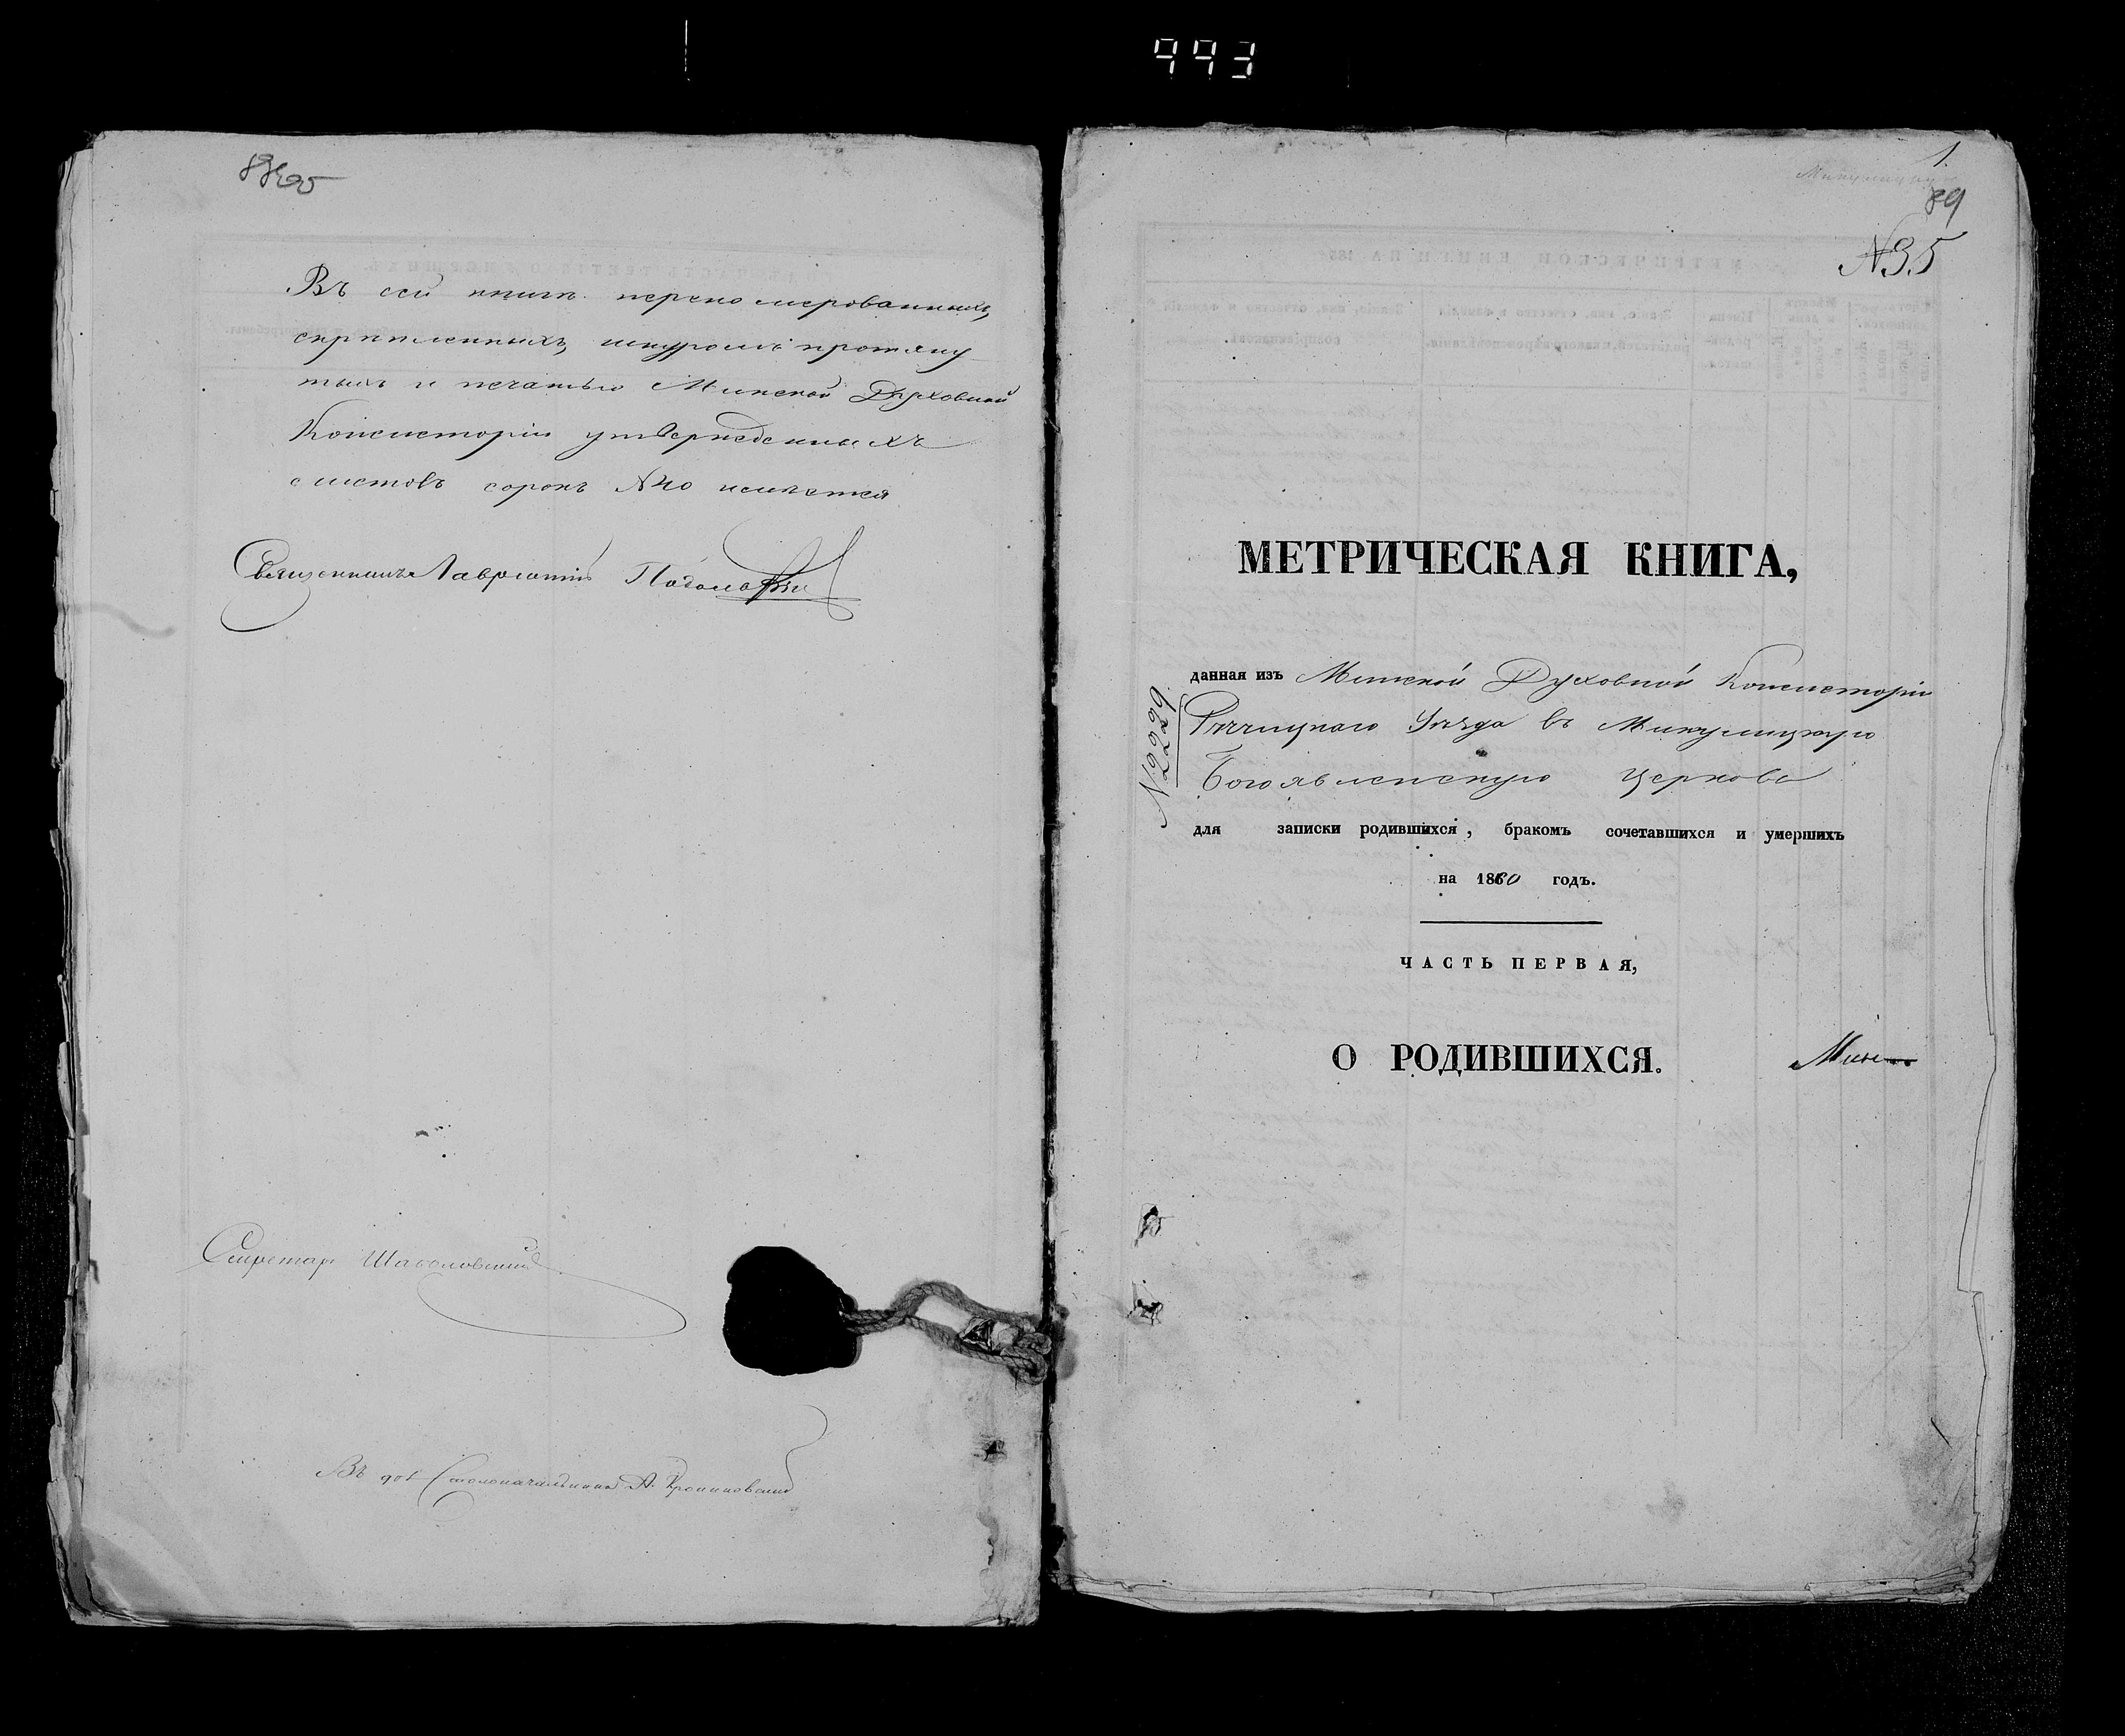 443
Въ сей книгѣ перенумерованныхъ,
скрѣпленныхъ, шнуромъ протяну
тыхъ и печатью Минской Духовной
Консисторіи утвержденныхъ
листовъ сорокъ №40 имѣется
Священникъ Лаврентій
Секретарь
Въ дол. Столоначальника А.
1.
89
№35
МЕТРИЧЕСКАЯ КНИГА,
данная изъ Минской Духовной Консисторіи
Рѣчицкаго Уѣзда въ Микулицкую
Богоявленскую церковь
№2229
для записки родившихся, бракомъ сочетавшихся и умершихъ
на 1860 годъ.
ЧАСТЬ ПЕРВАЯ,
О РОДИВШИХСЯ.
Мин